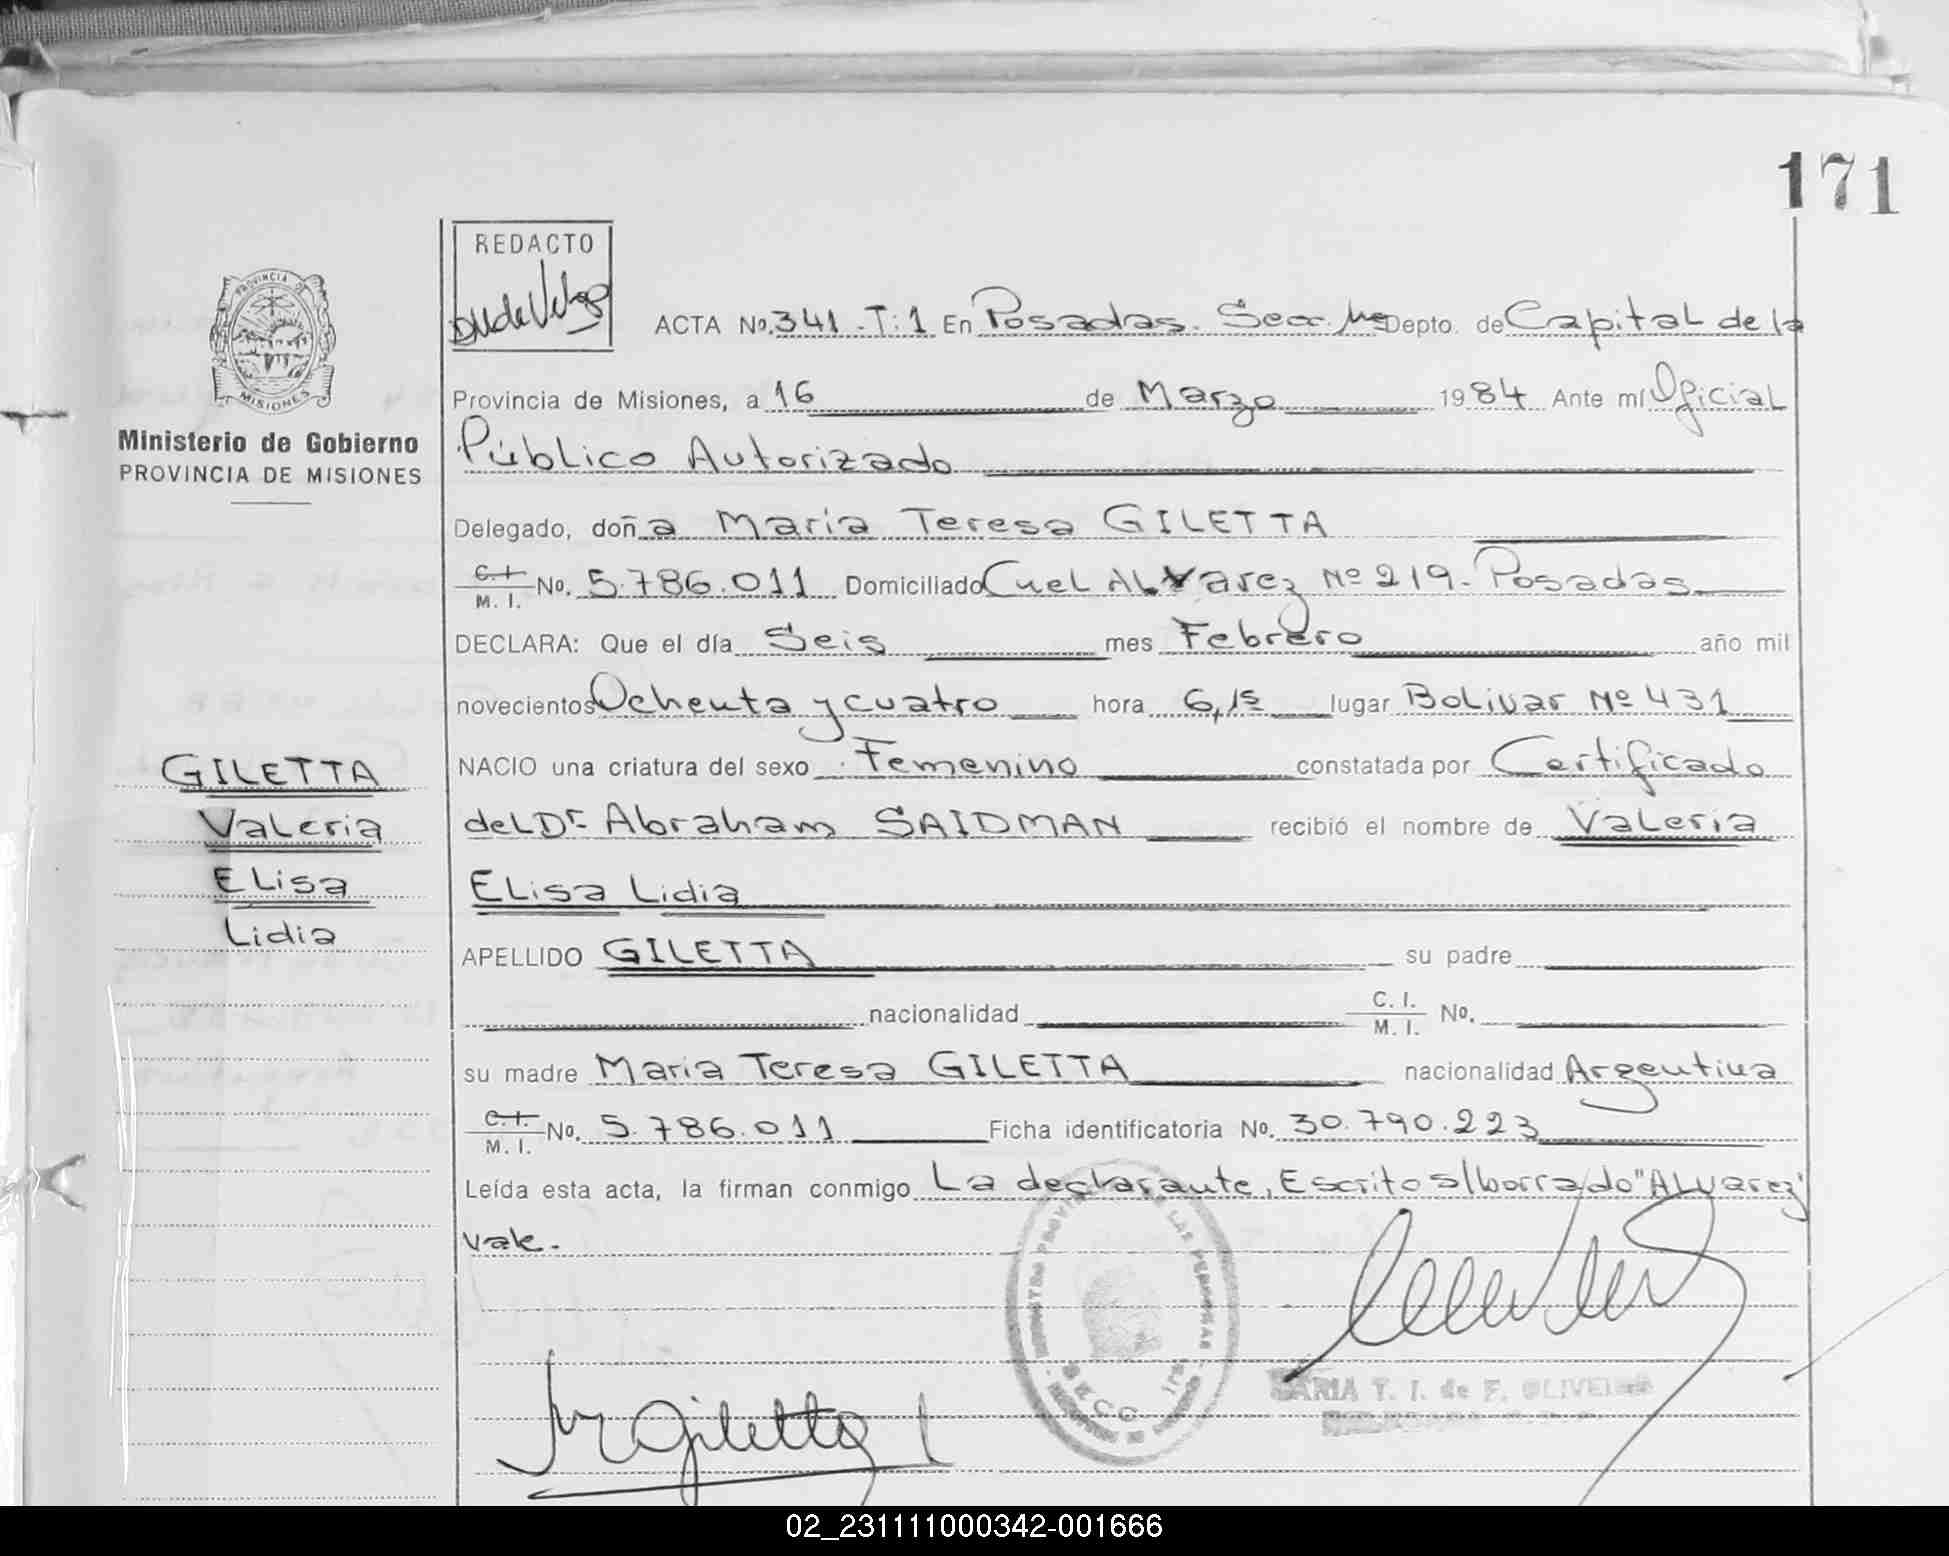 171
REDACTO
ACTA No. 341 - T: 1 En Posadas. Secc. Depto. de Capital de la
PROVINCIA DE
MISIONES
Provincia de Misiones, a 16 de Marzo 1984 Ante mí Oficial
Ministerio de Gobierno
PROVINCIA DE MISIONES
Público Autorizado
Delegado, doña Maria Teresa GILETTA
C. I. M. I. No. 5.786.011 Domiciliado Cnel ALvarez Nº 219 - Posadas
DECLARA: Que el día Seis mes Febrero año mil
novecientos Ochenta y cuatro hora 6,15 lugar Bolivar Nº 431
GILETTA
NACIO una criatura del sexo Femenino constatada por Certificado
Valeria
del Dr Abraham SAIDMAN recibió el nombre de Valeria
Elisa
Elisa Lidia
Lidia
APELLIDO GILETTA su padre
nacionalidad C. I. M. I. No.
su madre Maria Teresa GILETTA nacionalidad Argentina
C. I. M. I. No. 5.786.011 Ficha identificatoria No. 30.790.223
Leída esta acta, la firman conmigo La declarante, Escrito s/borrado "ALvarez"
vale.
DE LAS PERSONAS
SECC
MARIA T. I. de F. OLIVEIRA
Giletta
02_231111000342-001666